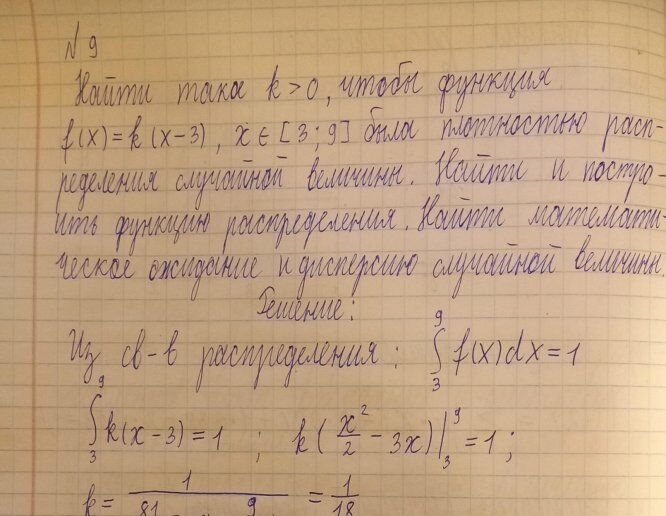 № 9
Найти тако k > 0, чтобы функция
f(x) = k(x-3), x ∈ [3; 9] была плотностью расп-
ределения случайной величины. Найти и постро-
ить функцию распределения. Найти математи-
ческое ожидание и дисперсию случайной величины.
Решение:
Из св-в распределения: ∫₃⁹ f(x)dx = 1
∫₃⁹ k(x-3) = 1 ; k(x²/2 - 3x)|₃⁹ = 1;
k = 1/81 9 = 1/18